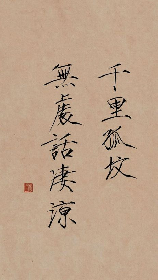 千里孤坟
無處話凄涼